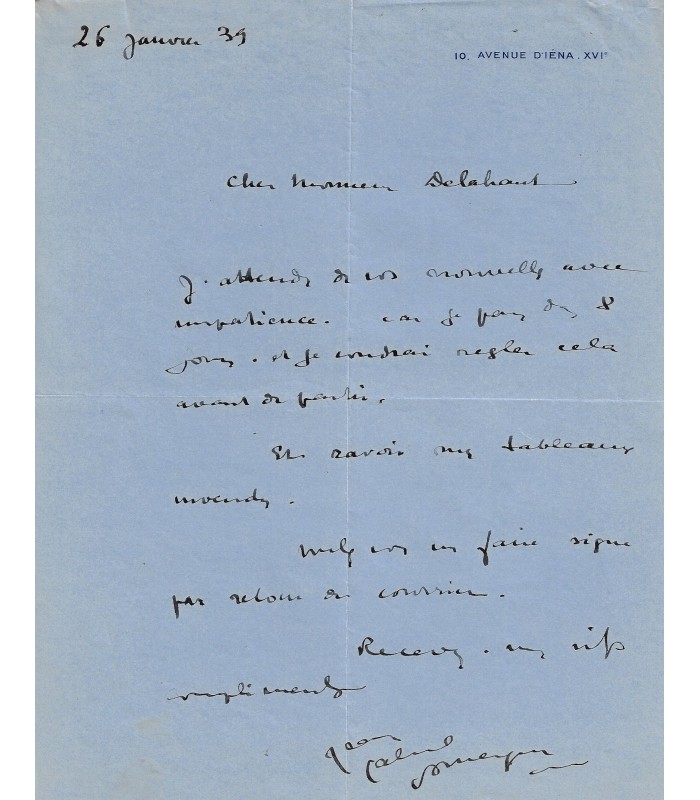 26 Janvier 39
10, AVENUE D'IÉNA. XVIe
Cher Monsieur Delahaut
J'attends de vos nouvelles avec
impatience. car je pars dans 8
jours. et je voudrai regler cela
avant de partir.
Et ravoir mes tableaux
invendus.
Veuillez me faire signe
par retour du courrier.
Recevez. mes
compliments
Jean Gabriel Domergue